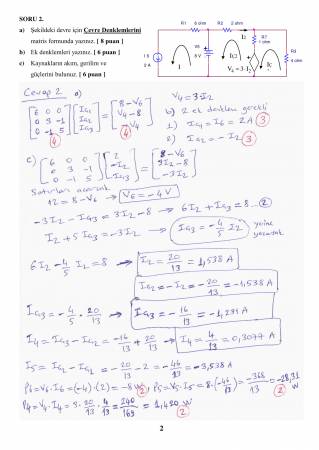 SORU 2.
a) Şekildeki devre için Çevre Denklemlerini
matris formunda yazınız. [ 8 puan ]
b) Ek denklemleri yazınız. [ 6 puan ]
c) Kaynakların akım, gerilim ve
güçlerini bulunuz. [ 6 puan ]
R1 6 ohm R2 2 ohm
I2
R7
1 ohm
V5
8 V
R3
4 ohm
I 6
2 A
V4=3·I2
Cevap 2 a)
[6 0 0] [IG1] = [8-V6]
[0 3 -1] [IG2] = [V4-8]
[0 -1 5] [IG3] = [-V4]
4 4
V4=3I2
b) 2 ek denklem gerekli
1) IG1=I6=2A 3
2) IG2=-I2 3
c) [6 0 0] [2] = [8-V6]
[0 3 -1] [-I2] = [3I2-8]
[0 -1 5] [IG3] = [-3I2]
Satırları açarsak
12=8-V6 → V6=-4V
-3I2-IG3=3I2-8 → 6I2+IG3=8 ..2
I2+5IG3=-3I2 → IG3=-4/5 I2 yerine
yazarsak
6I2-4/5 I2=8 → I2=20/13=1,538 A
IG2=-I2=-20/13=-1,538 A
IG3=-4/5·20/13 → IG3=-16/13=-1,231 A
I4=IG3-IG2=-16/13+20/13 → I4=4/13=0,3077 A
I5=IG2-IG1=-20/13-2=-46/13=-3,538 A
P6=V6·I6=(-4)·(2)=-8W 2, P5=V5·I5=8·(-46/13)=-368/13=-28,31 W 2
P4=V4·I4=3·20/13·4/13=240/169=1,420 W
2
2